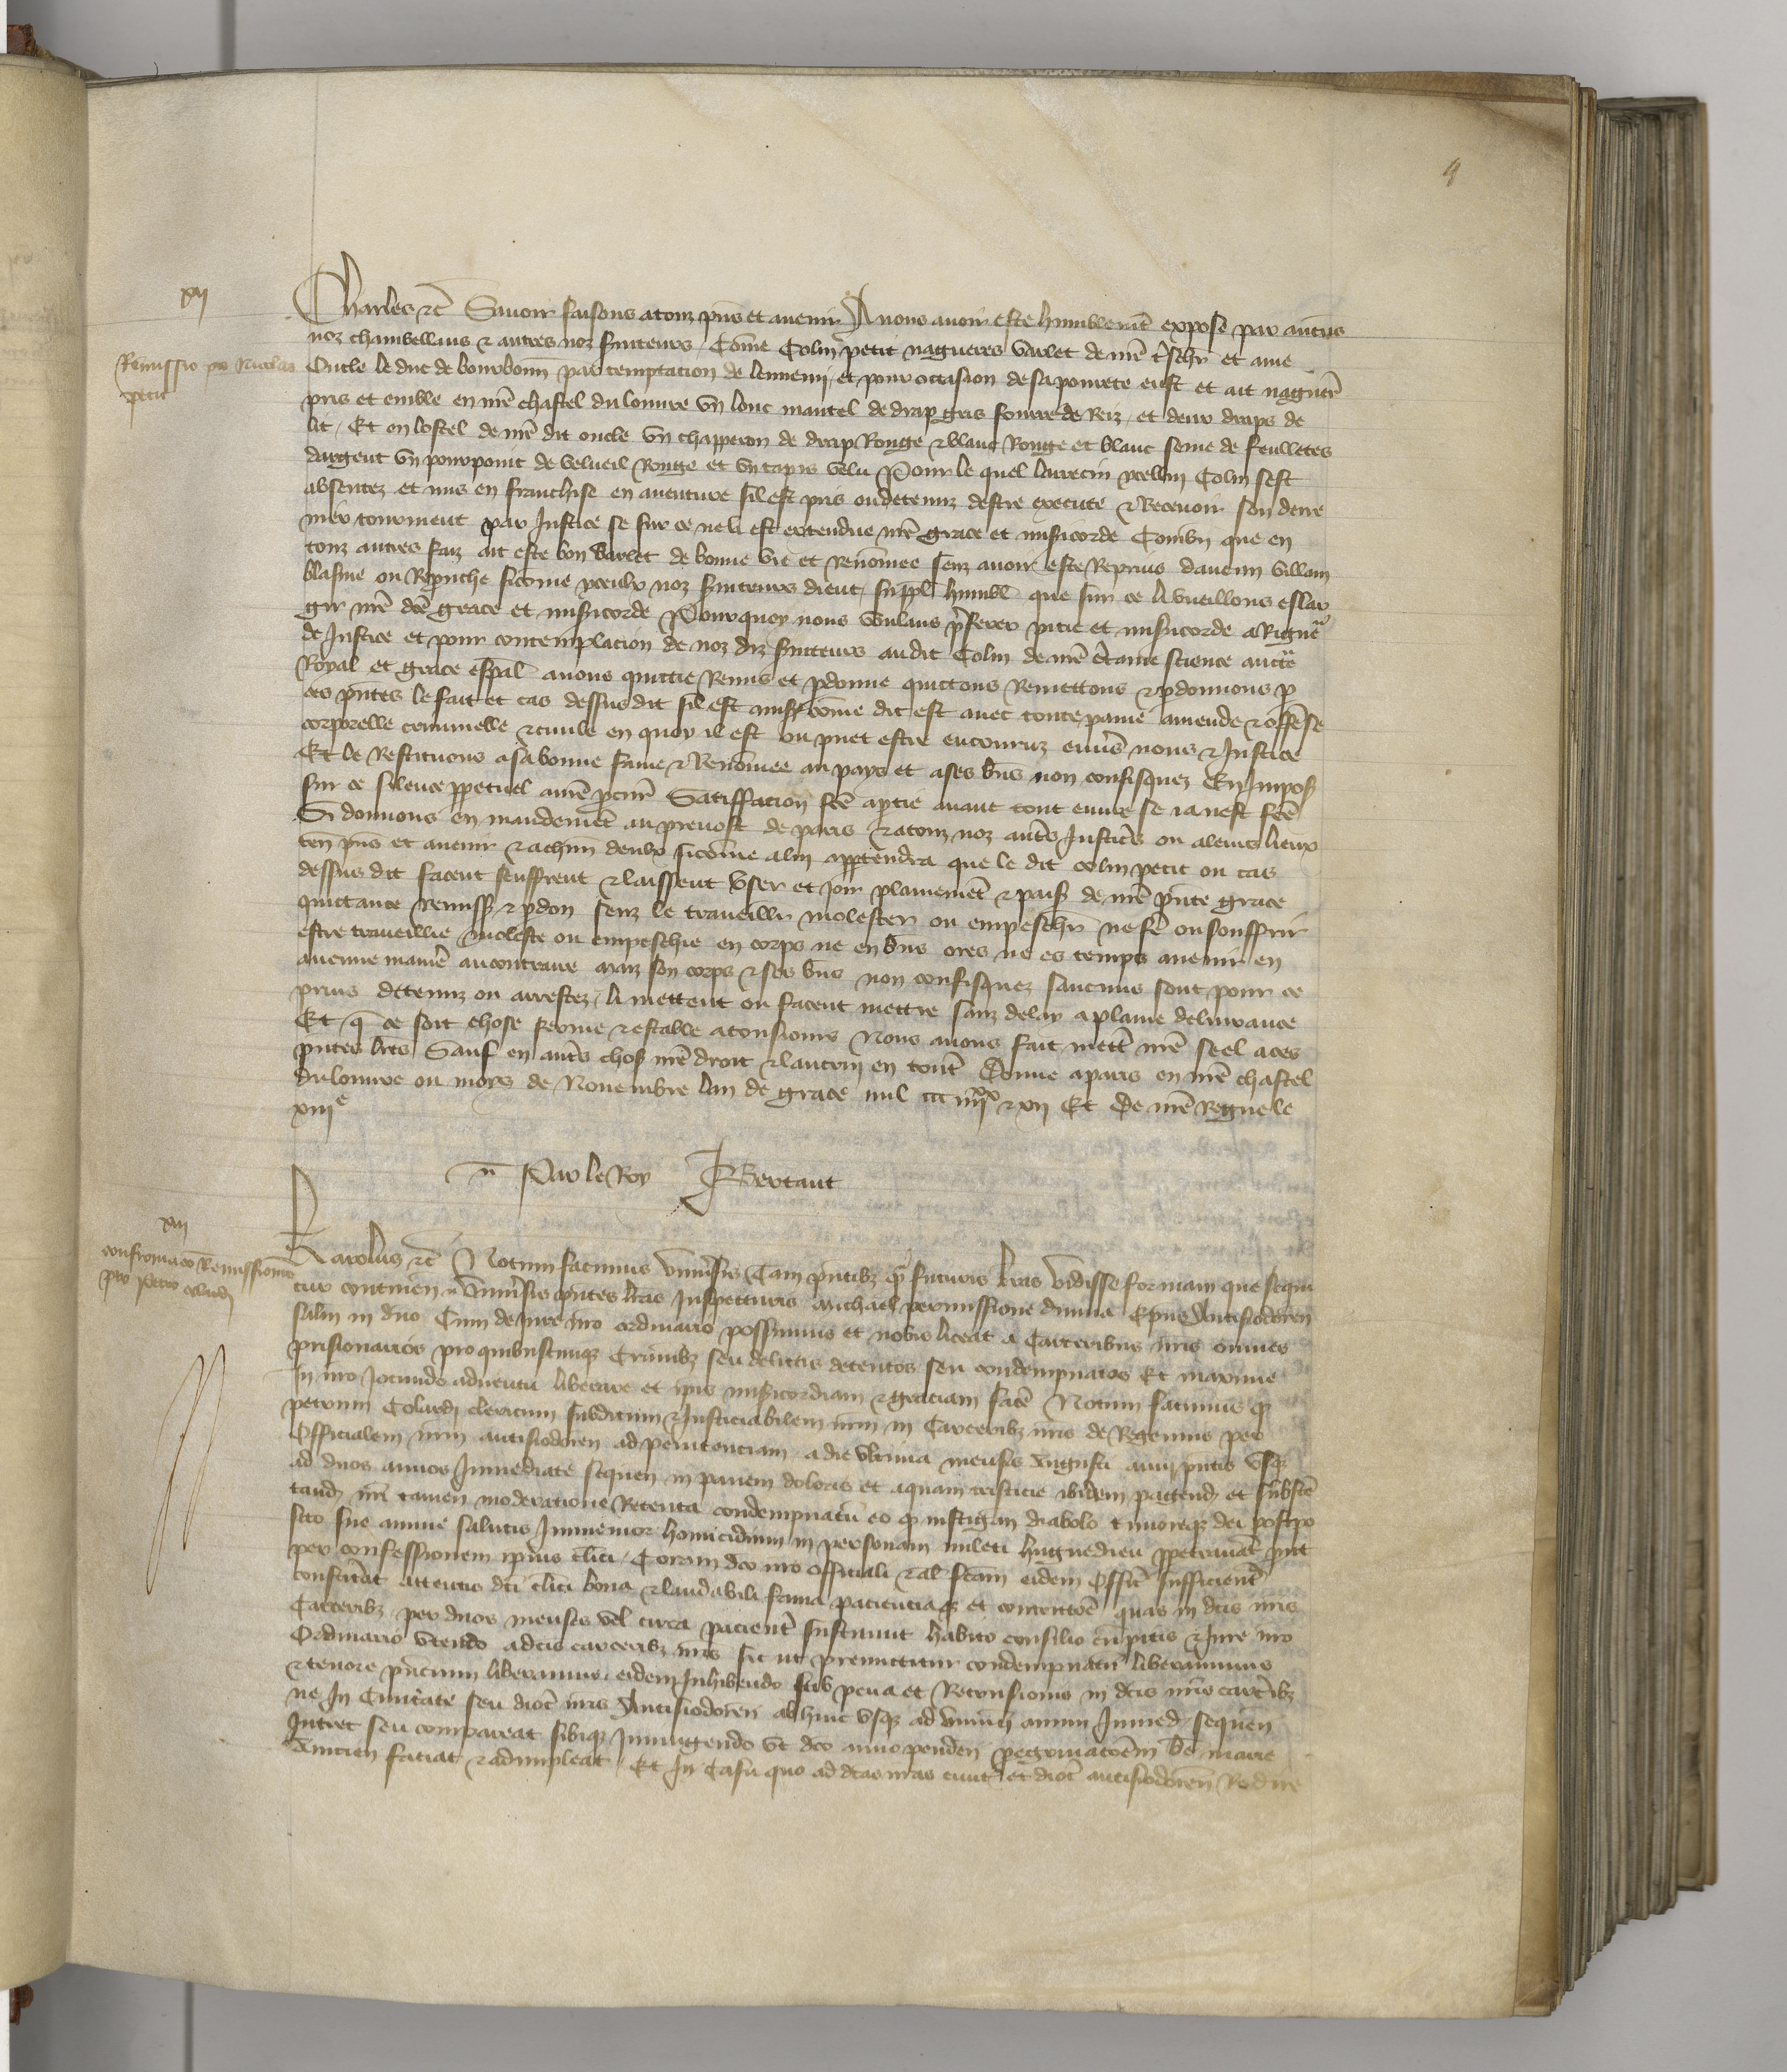 9
xii
Remissio pro Nicolao
petit
Charles etc Savoir faisons a touz pns et avenir A nous avoir este humblemt expose par aucuns
noz chambellans & autres noz serviteurs / Come Colin petit nagueres varlet de nre tscher et ame
Oncle le duc de bourbonn par temptacion de lennemi / et pour occasion de sa povrete eust et ait naguer
pris et emble en nre chastel du louvre un louc mantel de drap gris fourre de Reiz / et deux draps de
lit / Et en lostel de nre dit oncle un chapperon de drap Rouge & blanc Rouge et blanc seme de feulletes
dargent un pourpoint de velueil Rouge et un tapis velu Pour le quel larrecin ycellui Colin sest
absentez et mis en franchise en aventure sil est pris ou detenuz destre execute & Recevoir son derre
nier tourment par Justice se sur ce ne li est extendue nre grace et misicorde Combn que en
touz autres faiz ait este bon varlet de bonne vie et renommee senz avoir este Repris daucun villain
blasme ou Reprouche sicome yceulx noz serviteurs dient / suppl humbl que sur ce li vueillons eslar
gir nre dce grace et misicorde Pourquoy nous voulans preferer pitie et misicorde a Rigueur
de Justice et pour contemplacion de noz diz serviteurs au dit Colin de nre ctaine science aucte
Royal et grace espal avons quittie Remis et pdonne quictons Remettons & pdonnons p
ces pntes le fait et cas dessusdit sil est ainsi come dit est avec toute paine amende & offense
corporelle criminelle & civile en quoy il est ou puet estre encouruz envs nous & Justice
Et le Restituons a sa bonne fame & Renommee au pays et a ses bns non confisquez En Impos
sur ce silence ppetuel a nre pcur Satiffacion fce a ptie avant tout euvre se ia nest fce
Si donnons en mandement au prevost de paris & a touz noz auts Justicrs ou a leurs lieux
ten pns et avenir & a chun deulx sicome a lui apptendra que le dit colin petit ou cas
dessus dit facent seuffrent & laissent user et joir plainemt & paisi de nre pnte grace
quittance remiss & pdon senz le traveillr molester ou empeschr ne fe ou souffrir
estre traveillie moleste ou empeschie en corps ne en bns ores ne es temps avenir en
aucune maniē au contraire maiz son corps & ses bns non confisquez saucuns sont pour ce
prins detenuz ou arrestez / li mettent ou facent mettre sanz delay a plaine delivrance
Et q ce soit chose ferme & estable a tousiours Nous avons fait mett nre seel a ces
pntes lres Sauf en auts chos nre droit & lautrui en tout Donne a paris en nre chastel
du louvre ou moys de Novembre lan de grace mil ccc iiiixx & xii Et de nre Regne le
xiiie
n Par le Roy J Bertaut
xiii
confirmaco remissionis
pro petro colardi
Karolus etc Notum facimus univsis Tam pntibz q futuris lras vidisse formam que sequi
tur continen n Univsis pntes lras Inspecturis Michael permissione divina Epus Autisiodoren
salm in dno Cum de iure nro ordinario possimus et nobis liceat a Carceribus nris omnes
prisionarios pro quibuscumq Criminibz seu delictis detentos seu condempnatos Et maxime
In nro Jocundo adventu liberare et ipis misicordiam & graciam face Notum facimus q
petrum Colardi clericum subditum & Justiciabilem nrm in Carceribz nris de Regennis per
Officialem nrm autisiodoren ad penitenciam a die ultima mensis Augusti anni pntis usq
ad duos annos Immediate sequen in panem doloris et aquam tristicie ibidem pagend et subsce
tand nri tamen moderatione Retenta condempnatu eo q instigan diabolo timoreq dei postpo
sito sue anime salutis Immemor homicidium in personam mileti huguedieu ppetravat put
per confessionem ipius clici / Coram dco nro officiali & al scam eidem Offici sufficient
constiterat attentis dci clici bona & laudabili fama pacientia q et contritoe quas in dcis nris
Carceribz per duos menses vel circa pacient sustinuit habito consilio cu pitis & Jure nro
Ordinario utendo a dcis carceribz nris sic ut premittitur condempnatu liberavimus
& tenore pncium liberamus / eidem Inhibendo sub pena et Retrusionis in dcis nris carcibz
ne In Civitate seu dioc nris Autisiodoren ab hinc usq ad unum annu Inmed sequen
Intret seu compareat sibiq Iniungendo ut dco anno penden pegrinacoem be marie
Anicien faciat & adimpleat / Et In casu quo ad dcas nras civit et dioc autisiodoren Redire